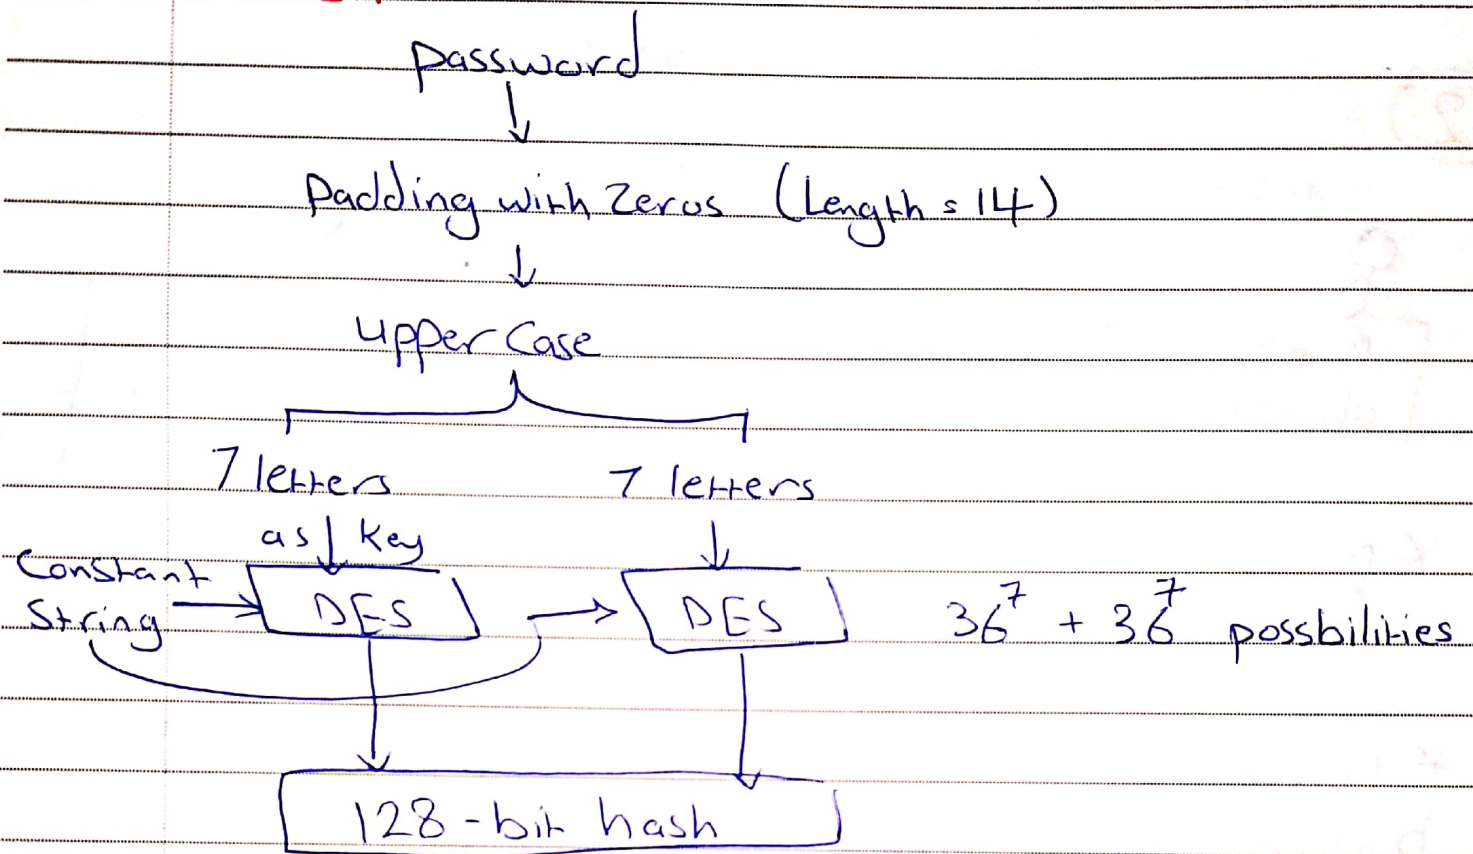 password
Padding with Zeros (Length = 14)
upper Case
7 letters 7 letters
as Key
Constant
String
DES
DES
36^7 + 36^7 possbilities
128-bit hash